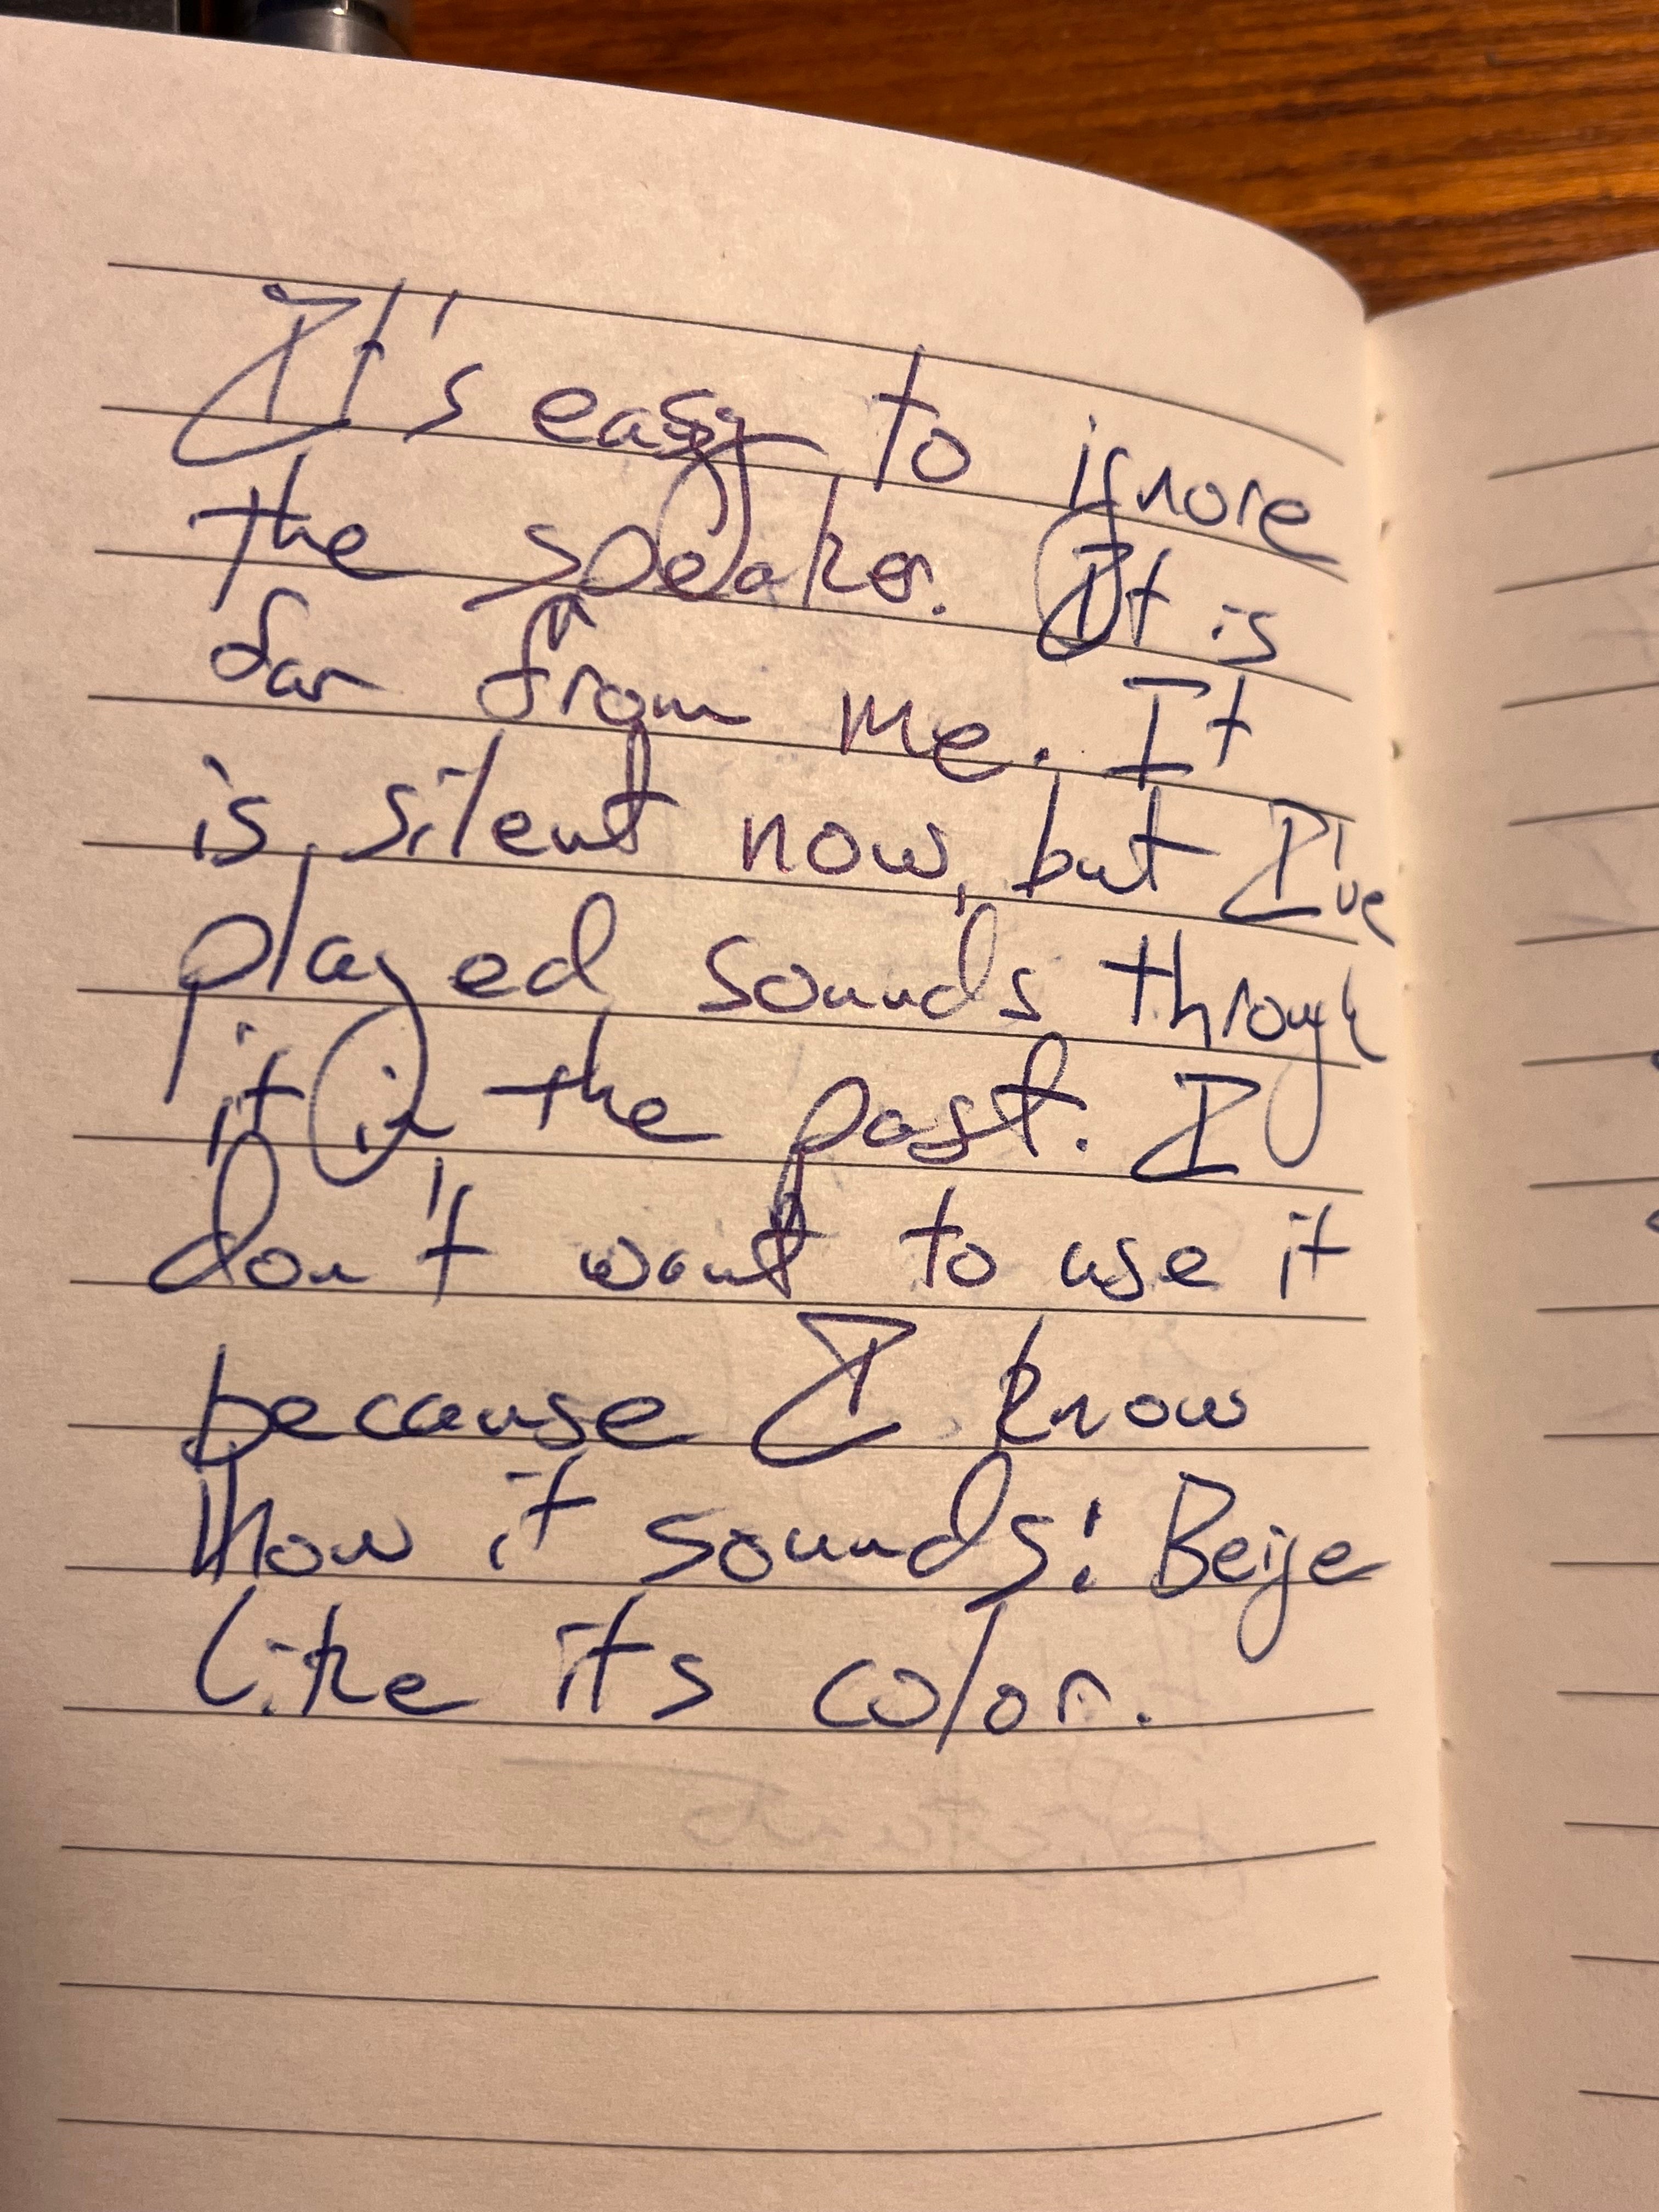 It's easy to ignore
the speaker. It is
far from me. It
is silent now, but I've
played sounds through
it in the past. I
don't want to use it
because I know
how it sounds: Beige
like its color.